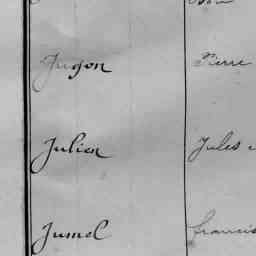 Jugon Pierre
Julien Jules
Jumel Francis